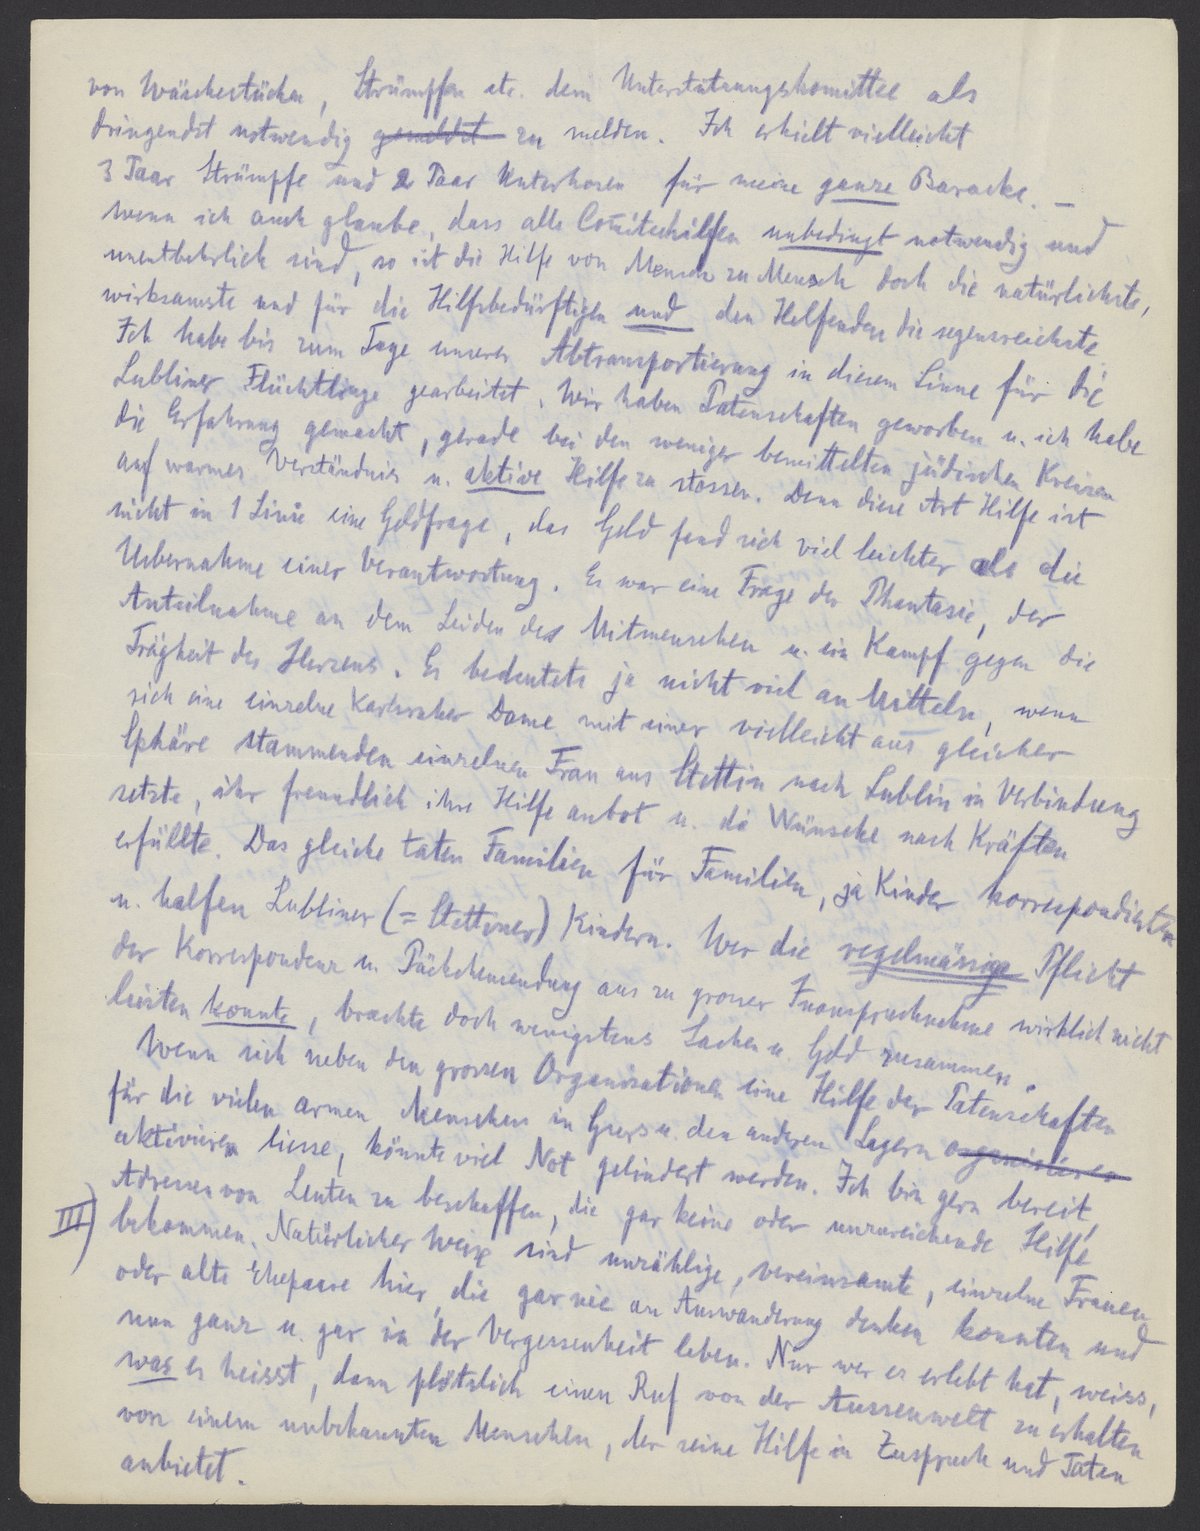 von Wäschestücken, Strümpfen etc. dem Unterstützungskomittee als
dringendst notwendig gemeldet zu melden. Ich erhielt vielleicht
3 Paar Strümpfe und 2 Paar Unterhosen für meine ganze Baracke. —
Wenn ich auch glaube, dass alle Comitéehilfen unbedingt notwendig und
unentbehrlich sind, so ist die Hilfe von Mensch zu Mensch doch die natürlichste,
wirksamste und für die Hilfsbedürftigen und den Helfenden die segensreichste.
Ich habe bis zum Tage unserer Abtransportierung in diesem Sinne für die
Lubliner Flüchtlinge gearbeitet. Wir haben Patenschaften geworben u. ich habe
die Erfahrung gemacht, gerade bei den weniger bemittelten jüdischen Kreisen
auf warmes Verständnis u. aktive Hilfe zu stossen. Denn diese Art Hilfe ist
nicht in 1 Linie eine Geldfrage, das Geld fand sich viel leichter als die
Uebernahme einer Verantwortung. Es war eine Frage der Phantasie, der
Anteilnahme an dem Leiden des Mitmenschen u. ein Kampf gegen die
Trägheit des Herzens. Es bedeutete ja nicht viel an Mitteln, wenn
sich eine einzelne Karlsruher Dame mit einer vielleicht aus gleicher
Sphäre stammenden einzelnen Frau aus Stettin nach Lublin in Verbindung
setzte, ihr freundlich ihre Hilfe anbot u. die Wünsche nach Kräften
erfüllte. Das gleiche taten Familien für Familien, ja Kinder korrespondierten
u. halfen Lubliner (= Stettiner) Kindern. Wer die regelmässige Pflicht
der Korrespondenz u. Päckchensendung aus zu grosser Inanspruchnahme wirklich nicht
leisten konnte, brachte doch wenigstens Sachen u. Geld zusammen.
Wenn sich neben den grossen Organisationen eine Hilfe der Patenschaften
für die vielen armen Menschen in Gurs u. den anderen Lagern organisieren
aktivieren liesse, könnte viel Not gelindert werden. Ich bin gern bereit,
Adressen von Leuten zu beschaffen, die gar keine oder unzureichende Hilfe
III) bekommen. Natürlicher Weise sind unzählige, vereinsamte, einzelne Frauen
oder alte Ehepaare hier, die gar nie an Auswanderung denken konnten und
nun ganz u. gar in der Vergessenheit leben. Nur wer es erlebt hat, weiss,
was es heisst, dann plötzlich einen Ruf von der Aussenwelt zu erhalten
von einem unbekannten Menschen, der seine Hilfe in Zuspruch und Taten
anbietet.